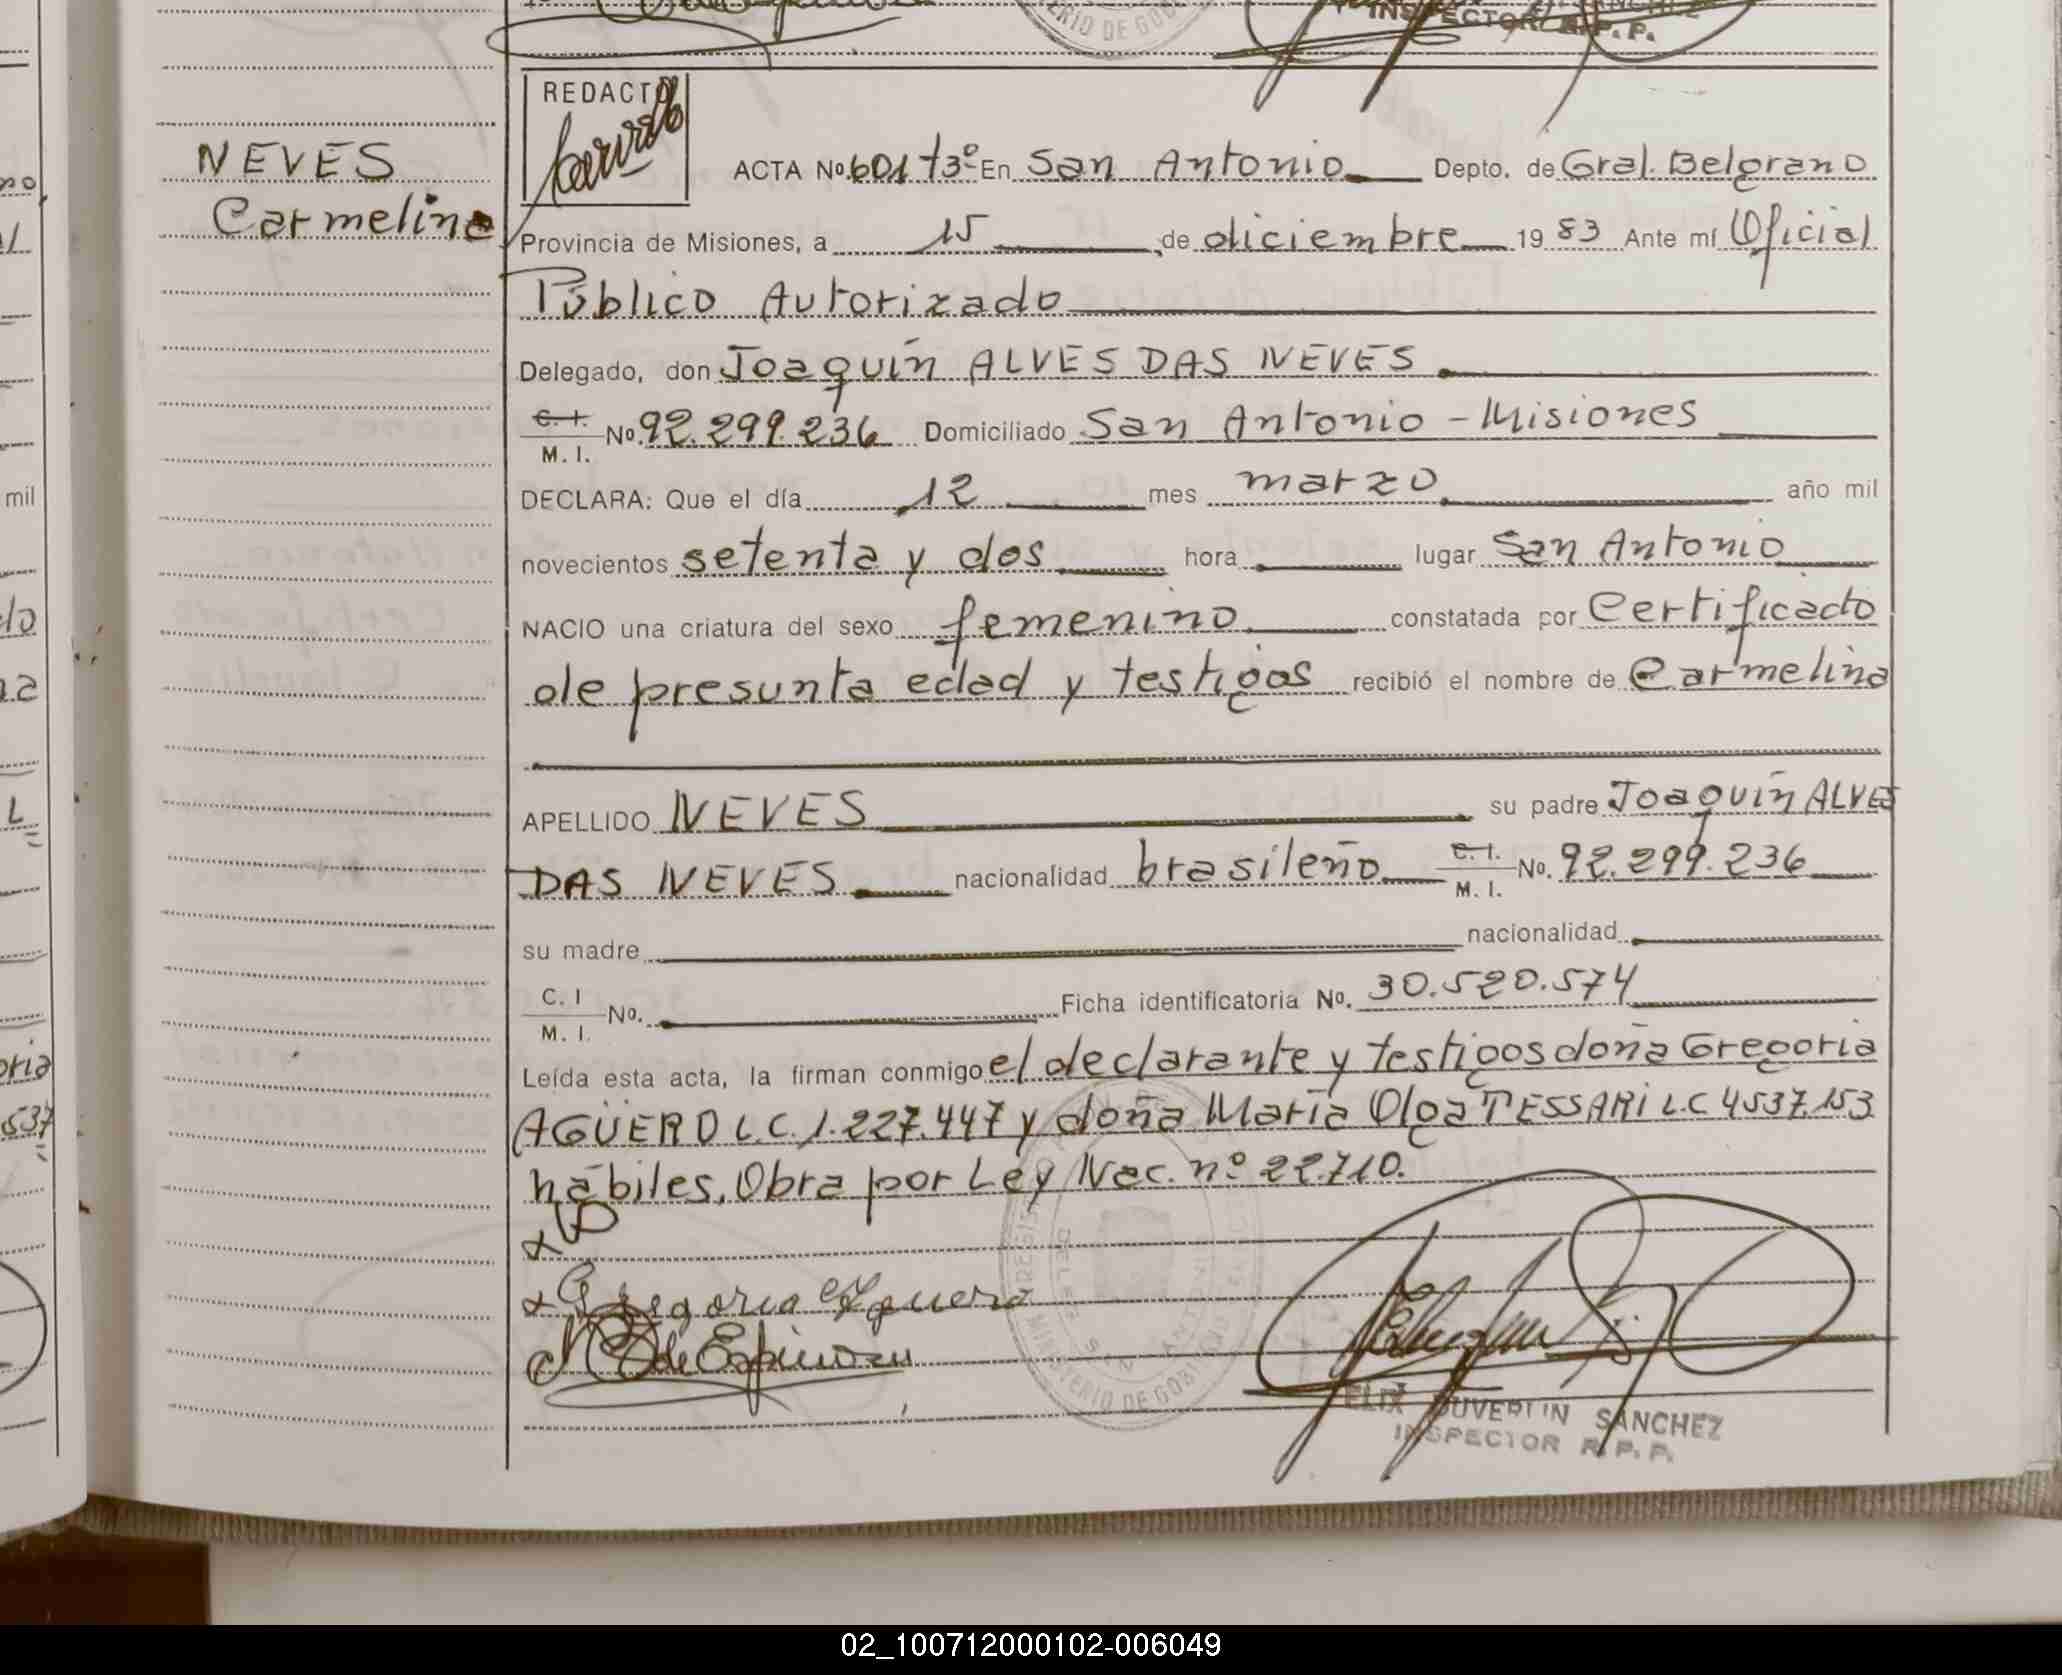 INSPECTOR R.P.P.
REDACTO
NEVES
Carmelina
ACTA No. 601 T3º En San Antonio Depto. de Gral. Belgrano
Provincia de Misiones, a 15 de diciembre 1983 Ante mí Oficial
Público Autorizado
Delegado, don Joaquín ALVES DAS NEVES
C.I. M.I. No. 92.299.236 Domiciliado San Antonio - Misiones
DECLARA: Que el día 12 mes marzo año mil
novecientos setenta y dos hora lugar San Antonio
NACIO una criatura del sexo femenino constatada por Certificado
de presunta edad y testigos recibió el nombre de Carmelina
APELLIDO NEVES su padre Joaquín ALVES
DAS NEVES nacionalidad brasileño C.I. M.I. No. 92.299.236
su madre nacionalidad
C.I M.I. No. Ficha identificatoria No. 30.520.574
Leída esta acta, la firman conmigo el declarante y testigos doña Gregoria
AGÜERO L.C. 1.227.447 y doña María Olga TESSARI L.C 4537.153
hábiles. Obra por Ley Nac. nº 22.710.
Gregoria Aguero
de Espinoza
FELIX DUVERLIN SANCHEZ
INSPECTOR R.P.P.
MINISTERIO DE GOBIERNO
02_100712000102-006049